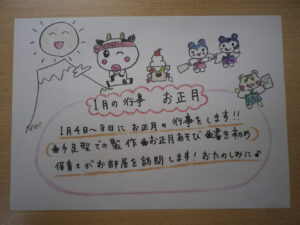 1月の行事 お正月
1月4日~8日に お正月の 行事をします!!
手足型での製作 お正月あそび 書き初め
保育士がお部屋を訪問します!おたのしみに♪